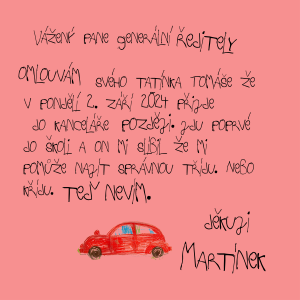 Vážený pane generální ředitely
omlouvám svého tatínka Tomáše že
v pondělí 2. září 2024 přijde
do kanceláře později. jdu poprvé
do školi a on mi slíbil že mi
pomůže najít správnou třídu. nebo
křídu. teď nevím.
děkuji
Martínek